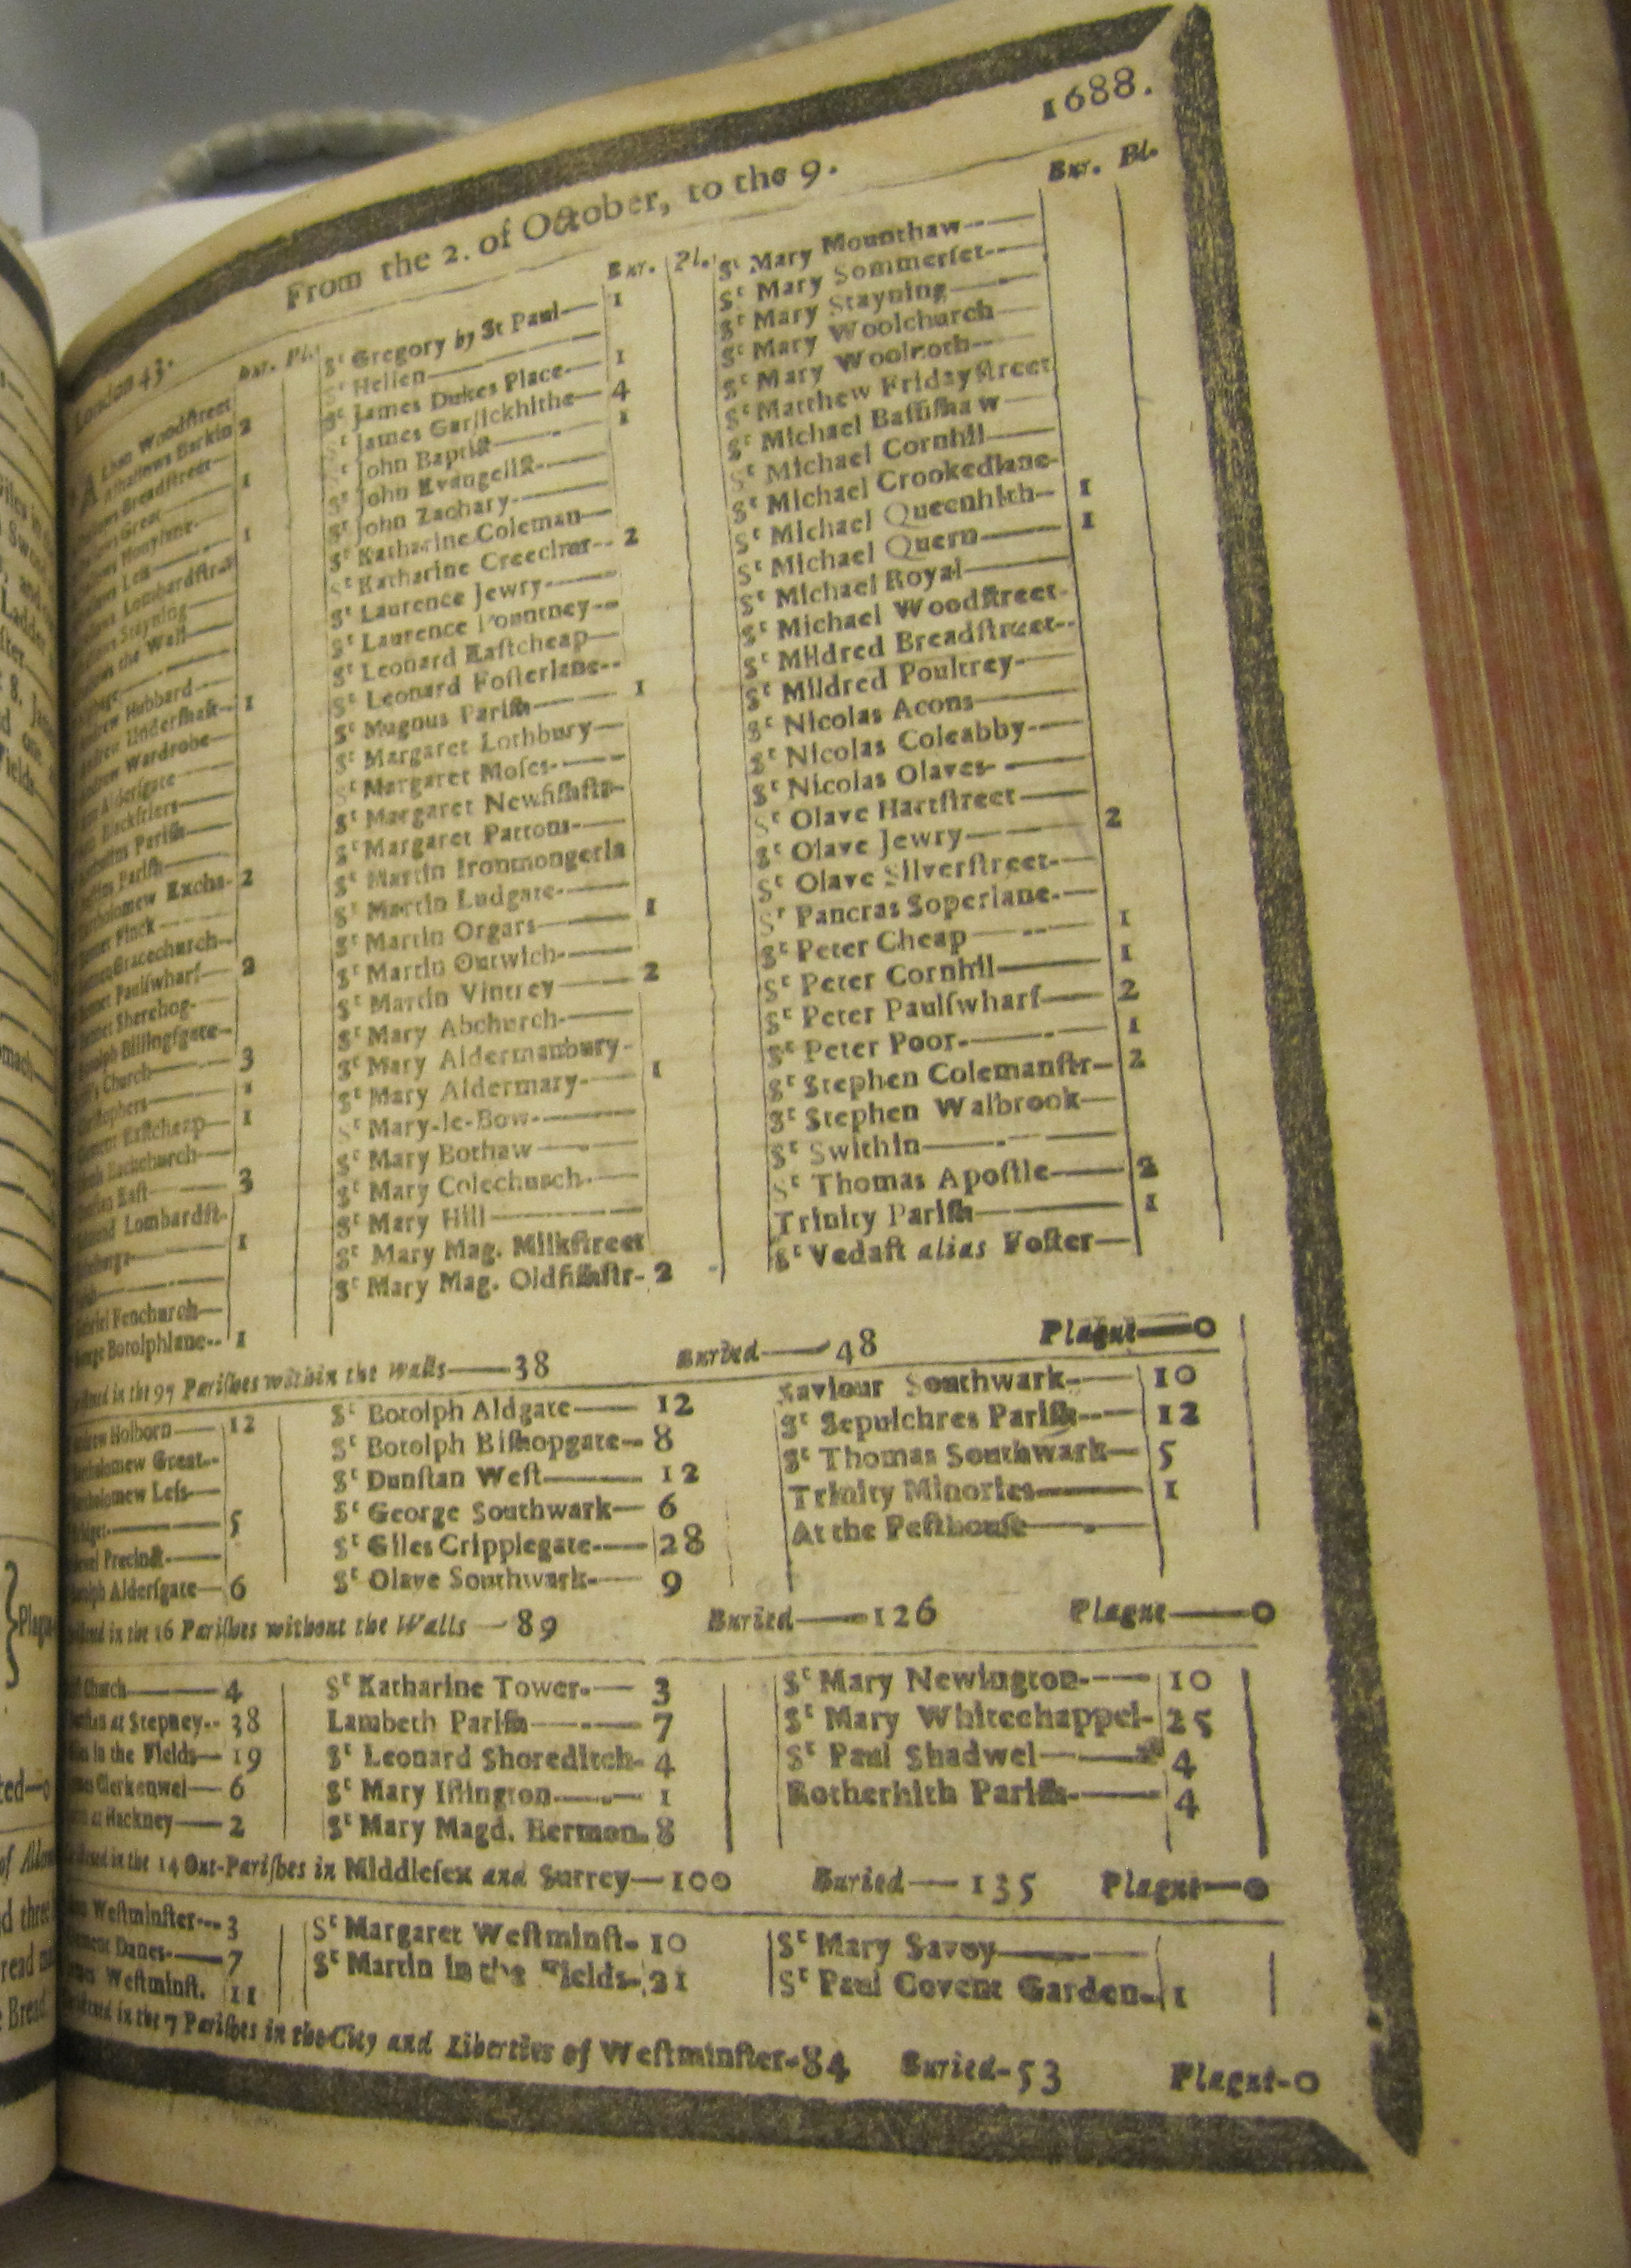 1688.
London 43. From the 2. of October, to the 9.
Bur. Pl.
Woodstreet
Alhallows Barkin 2
Breadstreet
Great 1
Honylane
Less 1
Lombardstr
Stayning
the Wall
Hubbard
Undershaft 1
Wardrobe
Aldersgate
Blackfriers
Parish
Parish
Excha- 2
Finck
Gracechurch
Paulswharf 2
Sherehog
Billingsgate
Church 3
1
Eastcheap 1
Backchurch
East 3
Lombardst.
1
Fenchurch
Botolphlane 1
Bur. Pl.
St Gregory by St Paul 1
St Hellen
St James Dukes Place 1
St James Garlickhithe 4
St John Baptist 1
St John Evangelist
St John Zachary
St Katharine Coleman
St Katharine Creechur 2
St Laurence Jewry
St Laurence Pountney
St Leonard Eastcheap
St Leonard Fosterlane
St Magnus Parish 1
St Margaret Lothbury
St Margaret Moses
St Margaret Newfishstr
St Margaret Pattons
St Martin Ironmongerla
St Martin Ludgate
St Martin Orgars 1
St Martin Outwich
St Martin Vintrey 2
St Mary Abchurch
St Mary Aldermanbury
St Mary Aldermary 1
St Mary-le-Bow
St Mary Bothaw
St Mary Colechurch
St Mary Hill
St Mary Mag. Milkstreet
St Mary Mag. Oldfishstr- 2
Bur. Pl.
St Mary Mounthaw
St Mary Sommerset
St Mary Stayning
St Mary Woolchurch
St Mary Woolnoth
St Matthew Fridaystreet
St Michael Bassishaw
St Michael Cornhil
St Michael Crookedlane
St Michael Queenhith 1
St Michael Quern 1
St Michael Royal
St Michael Woodstreet
St Mildred Breadstreet
St Mildred Poultrey
St Nicolas Acons
St Nicolas Coleabby
St Nicolas Olaves
St Olave Hartstreet
St Olave Jewry 2
St Olave Silverstreet
St Pancras Soperlane
St Peter Cheap 1
St Peter Cornhil 1
St Peter Paulswharf 2
St Peter Poor 1
St Stephen Colemanstr 2
St Stephen Walbrook
St Swithin
St Thomas Apostle 2
Trinity Parish 1
St Vedast alias Foster
in the 97 Parishes within the Walls 38 Buried 48 Plague 0
Holborn 12
Great
Less
5
Precinct
Aldersgate 6
St Botolph Aldgate 12
St Botolph Bishopgate 8
St Dunstan West 12
St George Southwark 6
St Giles Cripplegate 28
St Olave Southwark 9
Saviour Southwark 10
St Sepulchres Parish 12
St Thomas Southwark 5
Trinity Minories 1
At the Pesthouse
in the 16 Parishes without the Walls 89 Buried 126 Plague 0
Church 4
at Stepney 38
in the Fields 19
Clerkenwel 6
at Hackney 2
St Katharine Tower 3
Lambeth Parish 7
St Leonard Shoreditch 4
St Mary Islington 1
St Mary Magd. Bermon. 8
St Mary Newington 10
St Mary Whitechappel 25
St Paul Shadwel 4
Rotherhith Parish 4
in the 14 Out-Parishes in Middlesex and Surrey 100 Buried 135 Plague 0
Westminster 3
Danes 7
Westminst. 11
St Margaret Westminst- 10
St Martin in the Fields 21
St Mary Savoy
St Paul Covent Garden 1
in the 7 Parishes in the City and Liberties of Westminster-84 Buried-53 Plague-0